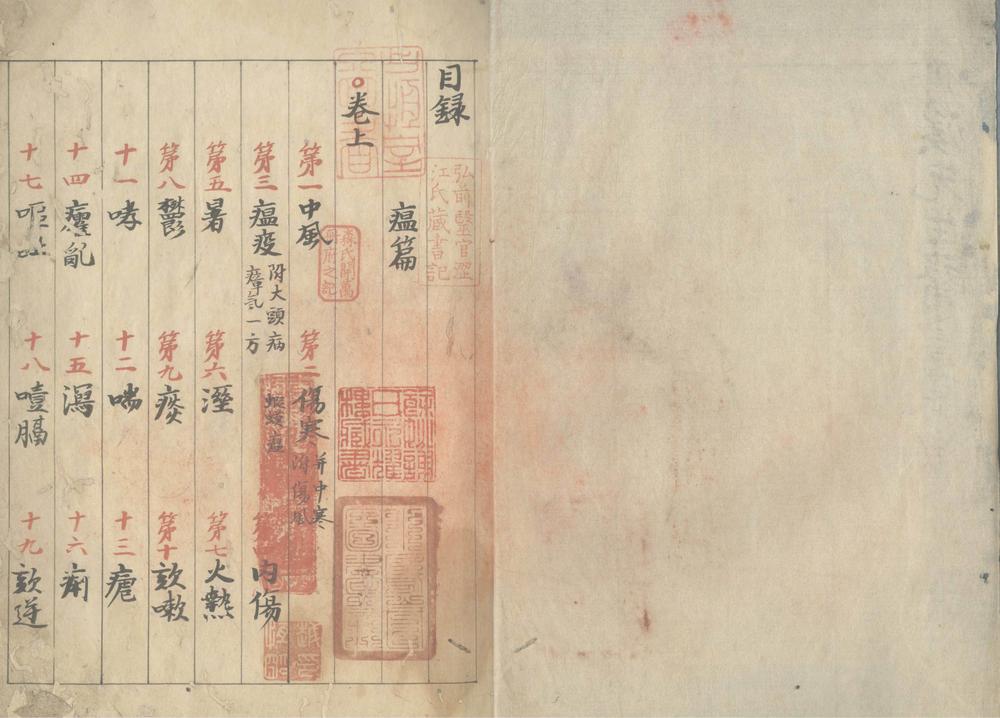 目録
卷上
瘟篇
第一中風
第二傷寒 并中寒
附傷風
第三瘟疫 附大頭病
瘴氣一方
蝦蟆瘟
第四內傷
第五暑
第六溼
第七火熱
第八鬱
第九痰
第十欬嗽
十一哮
十二喘
十三瘧
十四癨亂
十五瀉
十六痢
十七嘔吐
十八噎膈
十九欬逆
弘前醫官澀
江氏藏書記
森氏開萬
冊府之記